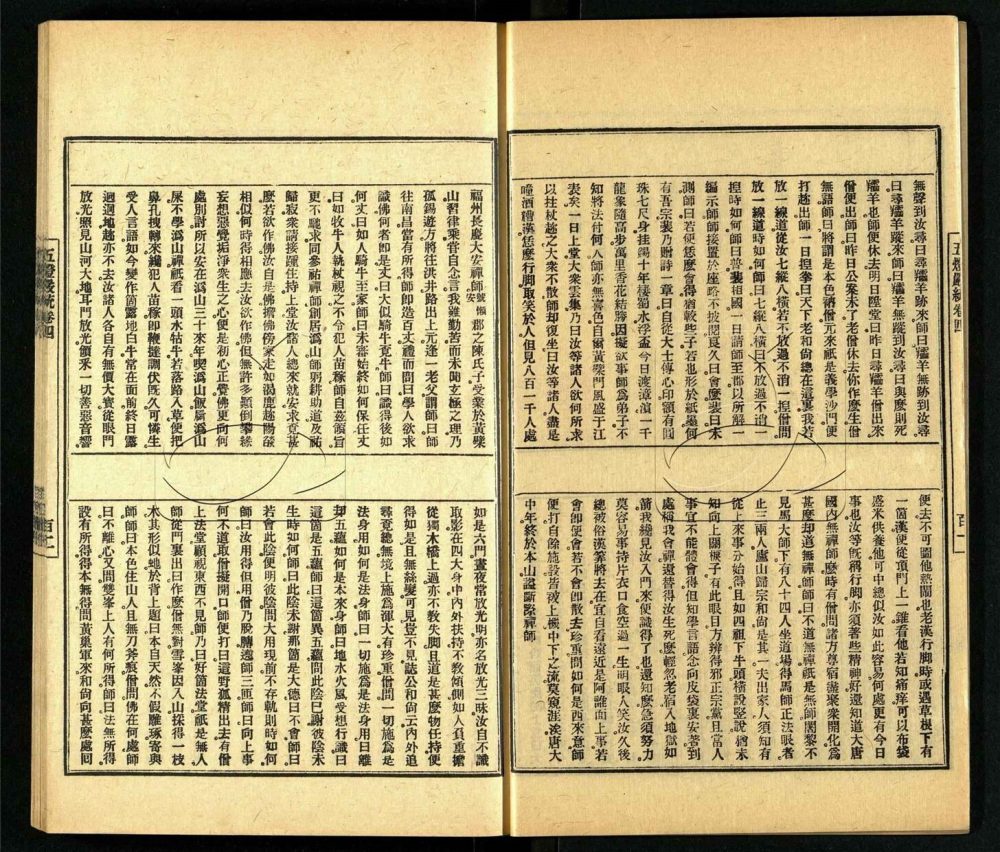 五燈嚴統卷四
百一
無聲到汝尋曰尋麢羊跡來師曰麢羊無跡到汝尋
曰尋麢羊蹤來師曰麢羊無蹤到汝尋曰與麼則死
麢羊也師便休去明日陞堂曰昨日尋麢羊僧出來
僧便出師曰昨日公案未了老僧休去你作麼生僧
無語師曰將謂是本色衲僧元來祇是義學沙門便
打趁出師一日捏拳曰天下老和尚總在這裏我若
放一線道從汝七縱八橫若不放過不消一捏僧問
放一線道時如何師曰七縱八橫曰不放過不消一
捏時如何師曰普裴相國一日請師至郡以所解一
編示師師接置於座略不披閱良久曰會麼裴曰未
測師曰若便恁麼會得猶較些子若也形於紙墨何
有吾宗裴乃贈詩一章曰自從大士傳心印額有圓
珠七尺身挂錫十年棲蜀水浮盃今日渡漳濱一千
龍象隨高步萬里香花結勝因擬欲事師為弟子不
知將法付何人師亦無喜色自爾黃檗門風盛于江
表矣一日上堂大衆雲集乃曰汝等諸人欲何所求
以拄杖趁之大衆不散師却復坐曰汝等諸人盡是
噇酒糟漢恁麼行脚取笑於人但見八百一千人處
便去不可圖他熱鬧也老漢行脚時或遇草根下有
一箇漢便從頂門上一錐看他若知痛痒可以布袋
盛米供養他可中總似汝如此容易何處更有今日
事也汝等旣稱行脚亦須著些精神好還知道大唐
國內無禪師麼時有僧問諸方尊宿盡聚衆開化為
甚麼却道無禪師師曰不道無禪祇是無師闍黎不
見馬大師下有八十四人坐道場得馬師正法眼者
止三兩人廬山歸宗和尚是其一夫出家人須知有
從上來事分始得且如四祖下牛頭橫說豎說猶未
知向上關棙子有此眼目方辨得邪正宗黨且當人
事宜不能體會得但知學言語念向皮袋裏安著到
處稱我會禪還替得汝生死麼輕忽老宿入地獄如
箭我纔見汝入門來便識得了也還知麼急須努力
莫容易事持片衣口食空過一生明眼人笑汝久後
總被俗漢筭將去在宜自看遠近是阿誰面上事若
會卽便會若不會卽散去珍重問如何是西來意師
便打自餘施設皆被上機中下之流莫窺涯涘唐大
中年終於本山謚斷際禪師
福州長慶大安禪師號懶安郡之陳氏子受業於黃檗
山習律乘嘗自念言我雖勤苦而未聞玄極之理乃
孤錫遊方將往洪井路出上元逢一老父謂師曰師
往南昌當有所得師卽造百丈禮而問曰學人欲求
識佛何者卽是丈曰大似騎牛覓牛師曰識得後如
何丈曰如人騎牛至家師曰未審始終如何保任丈
曰如收牛人執杖視之不令犯人苗稼師自茲領旨
更不馳求同參祐禪師創居溈山師躬耕助道及祐
歸寂衆請接踵住持上堂汝諸人總來就安求覓甚
麼若欲作佛汝自是佛擔佛傍家走如渴鹿趁陽燄
相似何時得相應去汝欲作佛但無許多顚倒攀緣
妄想惡覺垢淨衆生之心便是初心正覺佛更向何
處別討所以安在溈山三十來年喫溈山飯屙溈山
屎不學溈山禪祇看一頭水牯牛若落路入草便把
鼻孔拽轉來纔犯人苗稼卽鞭撻調伏旣久可憐生
受人言語如今變作箇露地白牛常在面前終日露
迥迥地趁亦不去汝諸人各自有無價大寶從眼門
放光照見山河大地耳門放光領釆一切善惡音響
如是六門晝夜常放光明亦名放光三昧汝自不識
取影在四大身中內外扶持不教傾側如人負重擔
從獨木橋上過亦不教失脚且道是甚麼物任持便
得如是且無絲髮可見豈不見誌公和尚云內外追
尋覓總無境上施為渾大有珍重僧問一切施為是
法身用如何是法身師曰一切施為是法身用曰離
却五蘊如何是本來身師曰地水火風受想行識曰
這箇是五蘊師曰這箇異五蘊問此陰已謝彼陰未
生時如何師曰此陰未謝那箇是大德曰不會師曰
若會此陰便明彼陰問大用現前不存軌則時如何
師曰汝用得但用僧乃脫膊遶師三匝師曰向上事
何不道取僧擬開口師便打曰這野狐精出去有僧
上法堂顧視東西不見師乃曰好箇法堂祇是無人
師從門裏出曰作麼僧無對雪峯因入山採得一枝
木其形似蛇於背上題曰本自天然不假雕琢寄與
師師曰本色住山人且無刀斧痕僧問佛在何處師
曰不離心又問雙峯上人有何所得師曰法無所得
設有所得得本無得問黃巢軍來和尚向甚麼處回
五燈嚴統卷四
百二